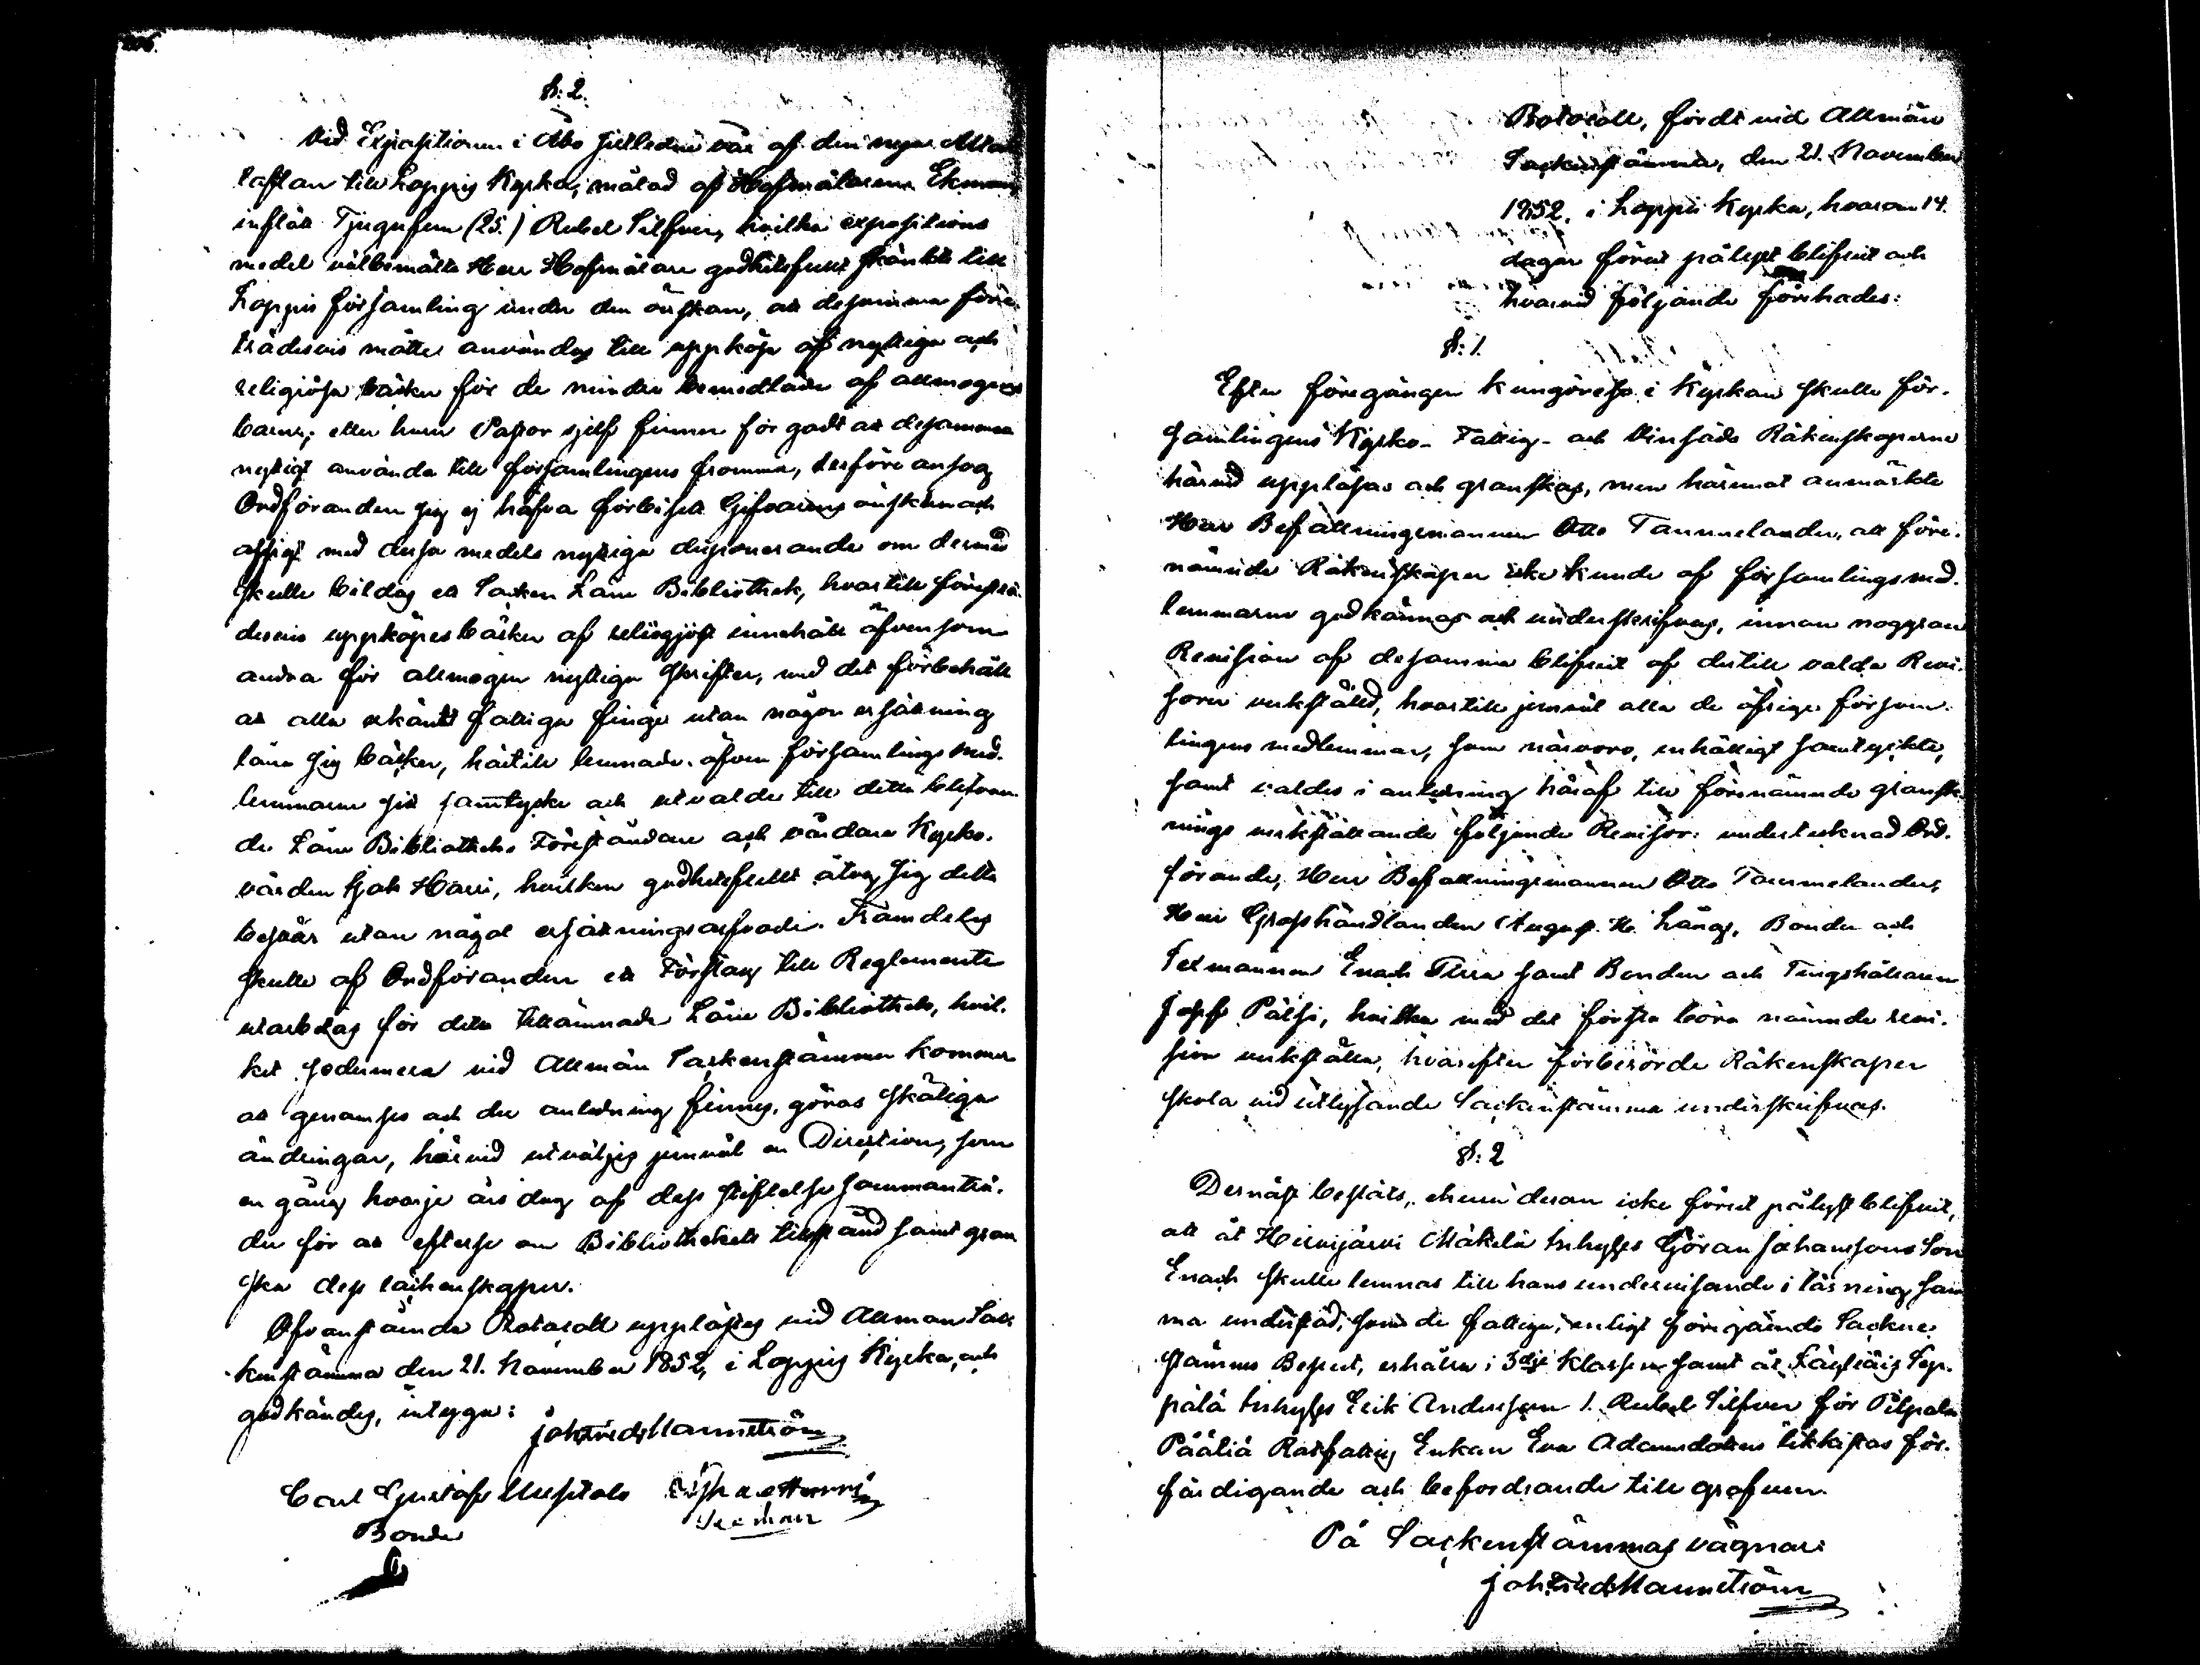 206.
§: 2.
Vid Expositionen i Åbo sistledne vår af den nya Altar
taflan till Loppis Kyrka, målad af Hofmålaren Ekman
inflöt Tjugufem (25.) Rubel Silfver, hvilka expositions
medel välbemälte Herr Hofmålare godhetsfullt skänkte till
Loppis församling under den önskan, att desamma före-
trädesvis måtte användas till uppköp af nyttiga och
religiösa böcker för de mindre bemedlade af allmogens
barn, eller huru Pastor sjelf finner för godt att desamma
nyttigt använda till församlingens fromma, derföre ansåg
Ordföranden sig ej hafva förbisett Gifvarens önskan och
afsigt med dessa medels nyttiga disponerande om dermed
skulle bildas ett Socken Låne Bibliothek, hvartill företrä-
desvis uppköpes böcker af religiöst innehåll äfvensom
andra för allmogen nyttiga skrifter, med det förbehåll
att alla erkändt fattiga finge utan någon ersättning
låna sig böcker, härtill lemnade äfven församlings med-
lemmarne sitt samtycke och utvalde till detta blifvan
de Låne Bibliotheks Föreståndare och vårdare Kyrko-
värden Isak Harri, hvilken godhetsfullt åtog sig detta
besvär utan något ersättningsarfvode. Framdeles
skulle af Ordföranden ett Förslag till Reglemente
utarbetas för detta tillämnade Låne Bibliothek, hvil-
ket sedermera vid Allmän Sockenstämma kommer
att genomses och der anledning finnes, göras skäliga
ändringar, härvid utväljes jemväl en Direction, som
en gång hvarje års dag af dess stiftelse sammanträ-
der för att efterse om Bibliothekets tillstånd samt gran
ska dess räkenskaper.
Ofvanstående Protocoll upplästes vid Allman Soc
kenstämma den 21. November 1852, i Loppis Kyrka, och
godkändes, intyga:
Joh Fredr Mannström
Carl Gustaf
Bonde
§: 2
Protocoll, fördt vid Allmän
Sockenstämma, den 21. November
1852, i Loppis Kyrka, hvarom 14.
dagar förut pålyst blifvit och
hvarvid följande förehades:
§: 1.
Efter föregången kungörelse i Kyrkan skulle för-
samlingens Kyrko- Fattig- och Vinsäds Räkenskaperne
härvid uppläsas och granskas, men häremot anmärkte
Herr Befallningsmannen Otto Tammelander, att före-
nämnde Räkenskaper icke kunde af församlingsmed-
lemmarne godkännas och underskrifvas, innan noggran
Revision af desamma blifvit af dertill valda Revi-
sorer verkställd, hvartill jemväl alla de öfriga försam-
lingens medlemmar, som närvoro, enhälligt samtyckte,
samt valdes i anledning häraf till förenämnde gransk-
nings verkställande följande Revisor: undertecknad Ord-
förande, Herr Befallningsmannen Otto Tammelander,
Herr Grosshandlanden August H. Lång, Bonden och
Sexmannen Enoch samt Bonden och Tingshållaren
Josef Pätsi, hvilka med det första böra nämnde revi-
sion verkställa, hvarefter förberörde Räkenskaper
skola vid utlysande Sockenstämma underskrifvas.
§: 2
Dernäst beslöts, ehuru derom icke förut pålyst blifvit,
att åt Hirvijärvi Mäkelä Inhyses Göran Johanssons Son
Enoch skulle lemnas till hans undervisande i läsning sam
ma understöd, som de fattige, enligt föregående Sockne-
stämmo Beslut, erhålla i 3dje Klassen samt åt Läyliäis Sep-
pälä Inhyses Erik Andersson 1. Rubel Silfver för Pilpala
Pääliä Rotfattig Enkan Eva Adamsdotters likkistas för-
färdigande och befordrande till grafven.
På Sockenstämmas vägnar:
Joh Fredr Mannström